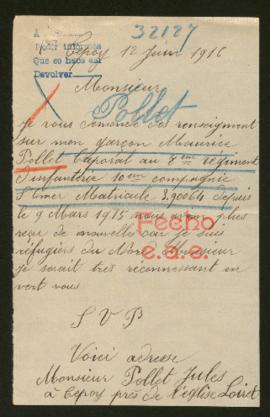 32127
Para informes
Que se hace así
Devolver
Cepoy 12 Juin 1916
Monsieur
Pollet
Je vous demende des renseigment
sur mon garçon Maurice
Pollet Caporal au 8eme regiment
d'infanterie 10em compagnie
S Omer Matricule 3.90064 depuis
le 9 Mars 1915 nous avons plus
reçue de nouvelles car je suis
réfugiers du Nord Monsieur
je serait tres reconnessant en
vert vous
Fecho
e.a.e.
S V P
Voici adresse
Monsieur Pollet Jules
à Cepoy près de l'église Loiret